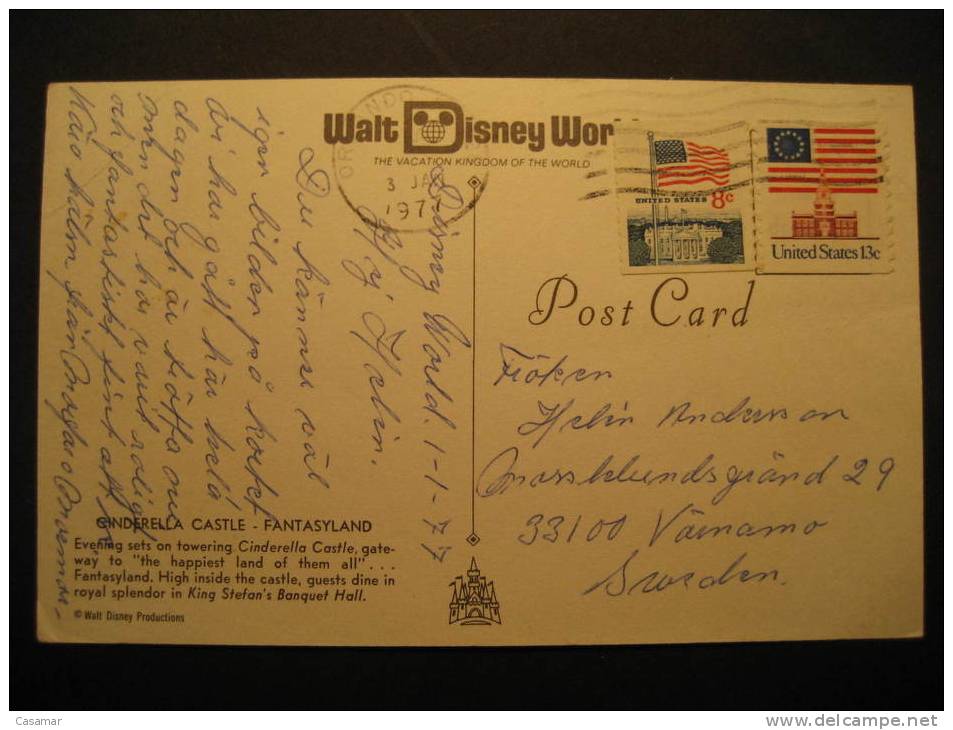 Walt Disney Wor
THE VACATION KINGDOM OF THE WORLD
3 JA
1977
UNITED STATES 8c
United States 13c
Post Card
Disney World. 1-1-77
Hej Helin.
Du känner väl
igen bilden på kortet
vi har gått här hela
dagen och är trötta nu
men det har varit roligt
och fantastiskt fint att se
Fröken
Helin Andersson
Mossklundsgränd 29
33100 Värnamo
Sweden.
CINDERELLA CASTLE - FANTASYLAND
Evening sets on towering Cinderella Castle, gate-
way to "the happiest land of them all" . . .
Fantasyland. High inside the castle, guests dine in
royal splendor in King Stefan's Banquet Hall.
© Walt Disney Productions
Casamar
www.delcampe.net